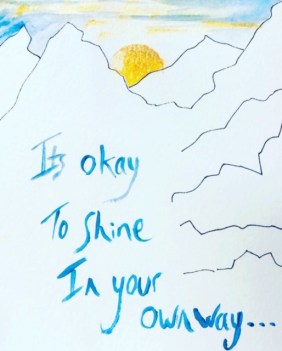 Its okay
To shine
In your
own way...